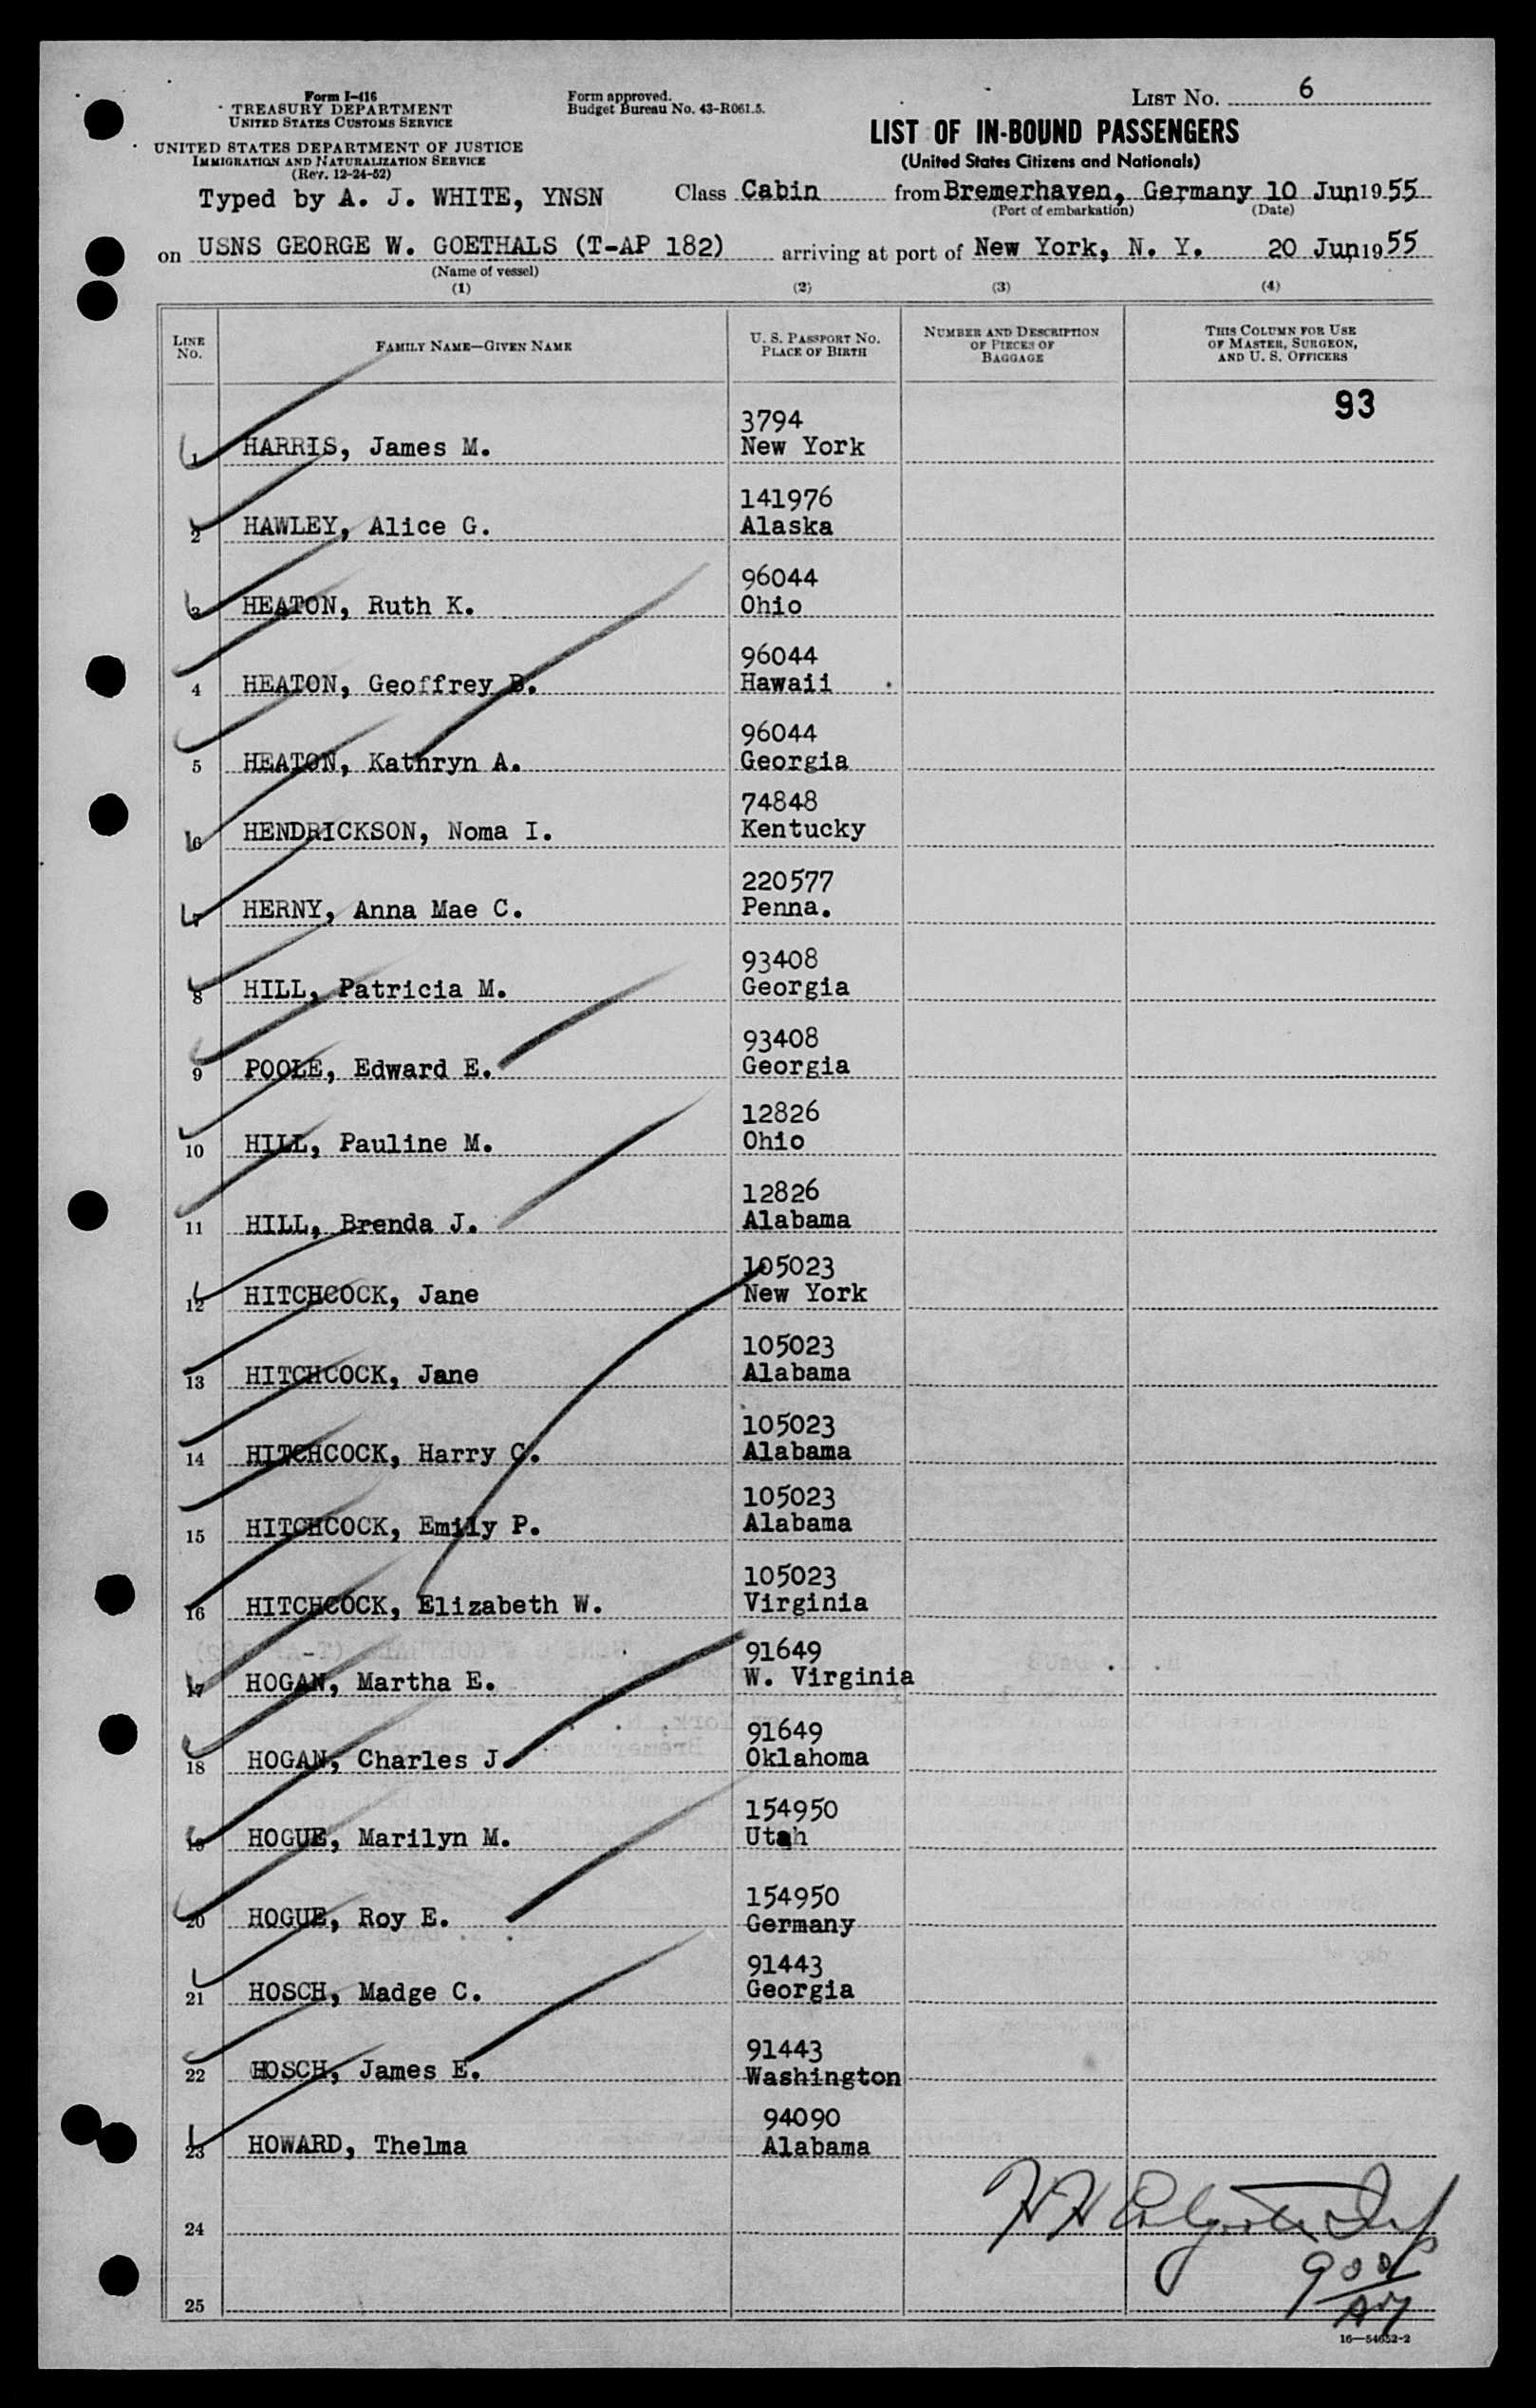 Form I-416
TREASURY DEPARTMENT
UNITED STATES CUSTOMS SERVICE
UNITED STATES DEPARTMENT OF JUSTICE
IMMIGRATION AND NATURALIZATION SERVICE
(Rev. 12-24-52)
Form approved.
Budget Bureau No. 43-R061.5.
LIST NO. 6
LIST OF IN-BOUND PASSENGERS
(United States Citizens and Nationals)
Typed by A. J. WHITE, YNSN Class Cabin from Bremerhaven, Germany 10 Jun, 1955
(Port of embarkation) (Date)
on USNS GEORGE W. GOETHALS (T-AP 182) arriving at port of New York, N. Y. 20 Jun, 1955
(Name of vessel)
(1) (2) (3) (4)
LINE NO. FAMILY NAME—GIVEN NAME U. S. PASSPORT NO. PLACE OF BIRTH NUMBER AND DESCRIPTION OF PIECES OF BAGGAGE THIS COLUMN FOR USE OF MASTER, SURGEON, AND U. S. OFFICERS
93
3794
1 HARRIS, James M. New York
141976
2 HAWLEY, Alice G. Alaska
96044
3 HEATON, Ruth K. Ohio
96044
4 HEATON, Geoffrey B. Hawaii
96044
5 HEATON, Kathryn A. Georgia
74848
6 HENDRICKSON, Noma I. Kentucky
220577
7 HERNY, Anna Mae C. Penna.
93408
8 HILL, Patricia M. Georgia
93408
9 POOLE, Edward E. Georgia
12826
10 HILL, Pauline M. Ohio
12826
11 HILL, Brenda J. Alabama
105023
12 HITCHCOCK, Jane New York
105023
13 HITCHCOCK, Jane Alabama
105023
14 HITCHCOCK, Harry C. Alabama
105023
15 HITCHCOCK, Emily P. Alabama
105023
16 HITCHCOCK, Elizabeth W. Virginia
91649
17 HOGAN, Martha E. W. Virginia
91649
18 HOGAN, Charles J. Oklahoma
154950
19 HOGUE, Marilyn M. Utah
154950
20 HOGUE, Roy E. Germany
91443
21 HOSCH, Madge C. Georgia
91443
22 HOSCH, James E. Washington
94090
23 HOWARD, Thelma Alabama
24
25
16—54652-2